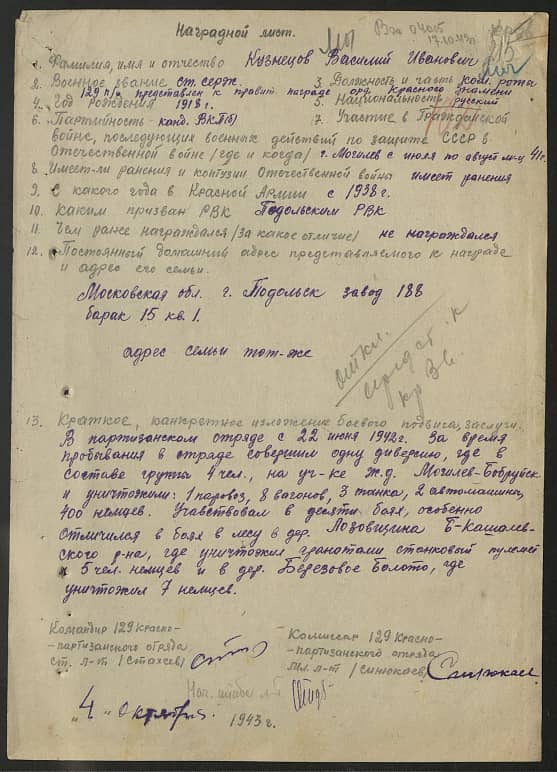 Наградной лист.
17.10.43г.
1. Фамилия, имя и отчество Кузнецов Василий Иванович
2. Военное звание ст. серж. 3. Должность и часть ком. роты
129 п/о представлен к правит. награде орд. Красного Знамени
4. Год рождения 1918 г. 5. Национальность русский
6. Партийность канд. ВКП(б) 7. Участие в Гражданской
войне, последующих военных действий по защите СССР в
Отечественной войне /где и когда/ г. Могилев с июля по август м-ц 41г.
8. Имеет-ли ранения и контузии Отечественной войны имеет ранения
9. С какого года в Красной Армии с 1938г.
10. Каким призван РВК Подольским РВК
11. Чем ранее награждался /за какое отличие/ не награждался
12. Постоянный домашний адрес представляемого к награде
и адрес его семьи.
Московская обл. г. Подольск завод 188
барак 15 кв. 1.
адрес семьи тот-же
откл.
предст. к
кр Зв.
13. Краткое, конкретное изложение боевого подвига, заслуги.
В партизанском отряде с 22 июня 1942г. За время
пребывания в отряде совершил одну диверсию, где в
составе группы 4 чел., на уч-ке ж.д. Могилев-Бобруйск
и уничтожили: 1 паровоз, 8 вагонов, 3 танка, 2 автомашины,
400 немцев. Учавствовал в десяти боях, особенно
отличился в боях в лесу в дер. Лозовщина Б-Кашалев-
ского р-на, где уничтожил гранатами станковый пулемет
х 5 чел. немцев и в дер. Березовое Болото, где
уничтожил 7 немцев.
Командир 129 красно-
-партизанского отряда
ст. л-т /Стахеев/
Комиссар 129 Красно-
-партизанского отряда
мл. л-т /Синюкаев/
Нач. штаба л-т
„4" октября 1943г.